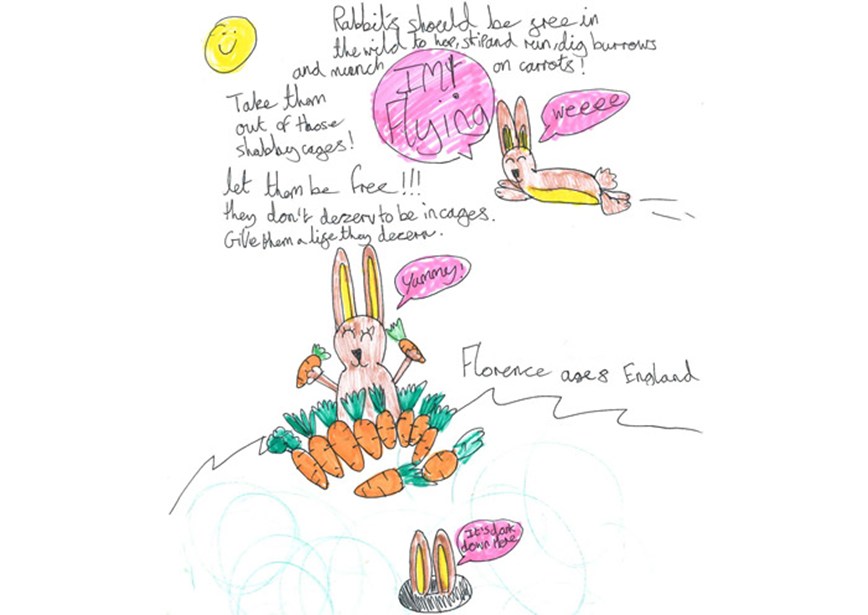 Rabbit's should be free in
the wild to hop, skip and run, dig burrows
and munch on carrots!
I'M
Flying
weeee
Take them
out of those
shabby cages!
let them be free!!!
they don't dezerv to be in cages.
Give them a life they dezerv.
Yummy!
Florence age 8 England
It's dark
down here